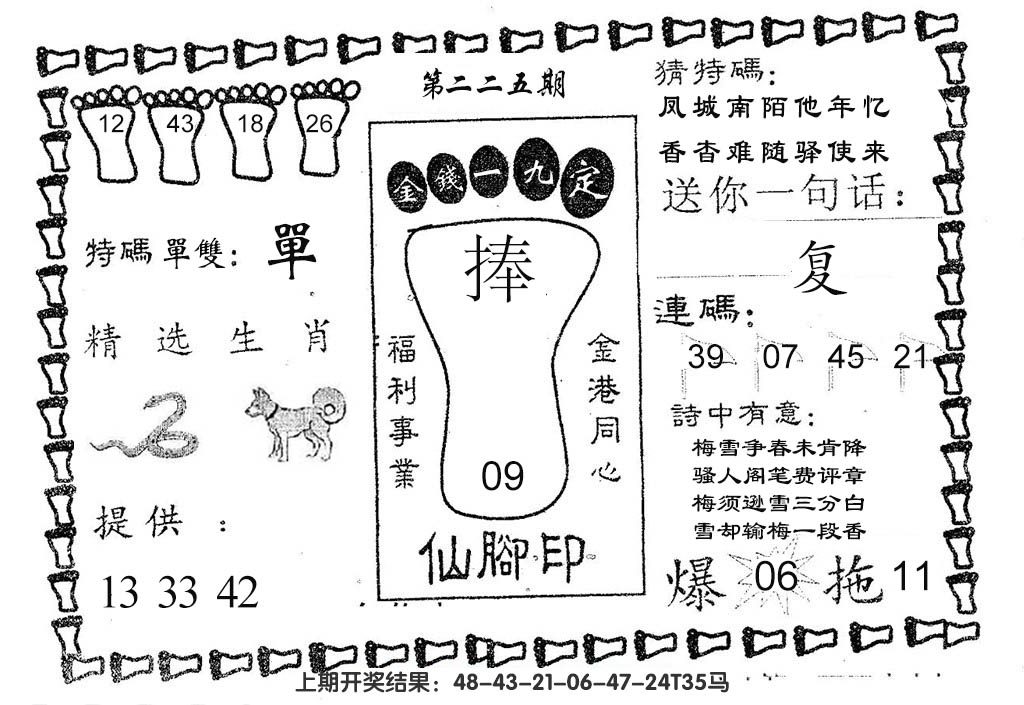 第二二五期
12 43 18 26
特碼單雙: 單
精选生肖
提供:
13 33 42
金錢一九定
捧
福利事業
金港同心
09
仙腳印
猜特碼:
凤城南陌他年忆
香杳难随驿使来
送你一句话:
复
連碼:
39 07 45 21
詩中有意:
梅雪争春未肯降
骚人阁笔费评章
梅须逊雪三分白
雪却输梅一段香
爆 06 拖 11
上期开奖结果：48-43-21-06-47-24T35马